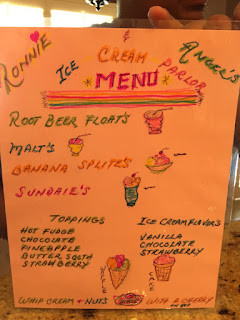 &
RONNIE ANGER'S
ICE CREAM PARLOR
*MENU*
ROOT BEER FLOATS
MALT'S
BANANA SPLITE'S
SUNDAIE'S
TOPPINGS
HOT FUDGE
CHOCOLATE
PINEAPPLE
BUTTER SCOTH
STRAWBERRY
ICE CREAM FLAVOR'S
VANILLA
CHOCOLATE
STRAWBERRY
WAFFLE
CAKE
WHIP CREAM + NUTS
WITH A CHERRY
ON TOP